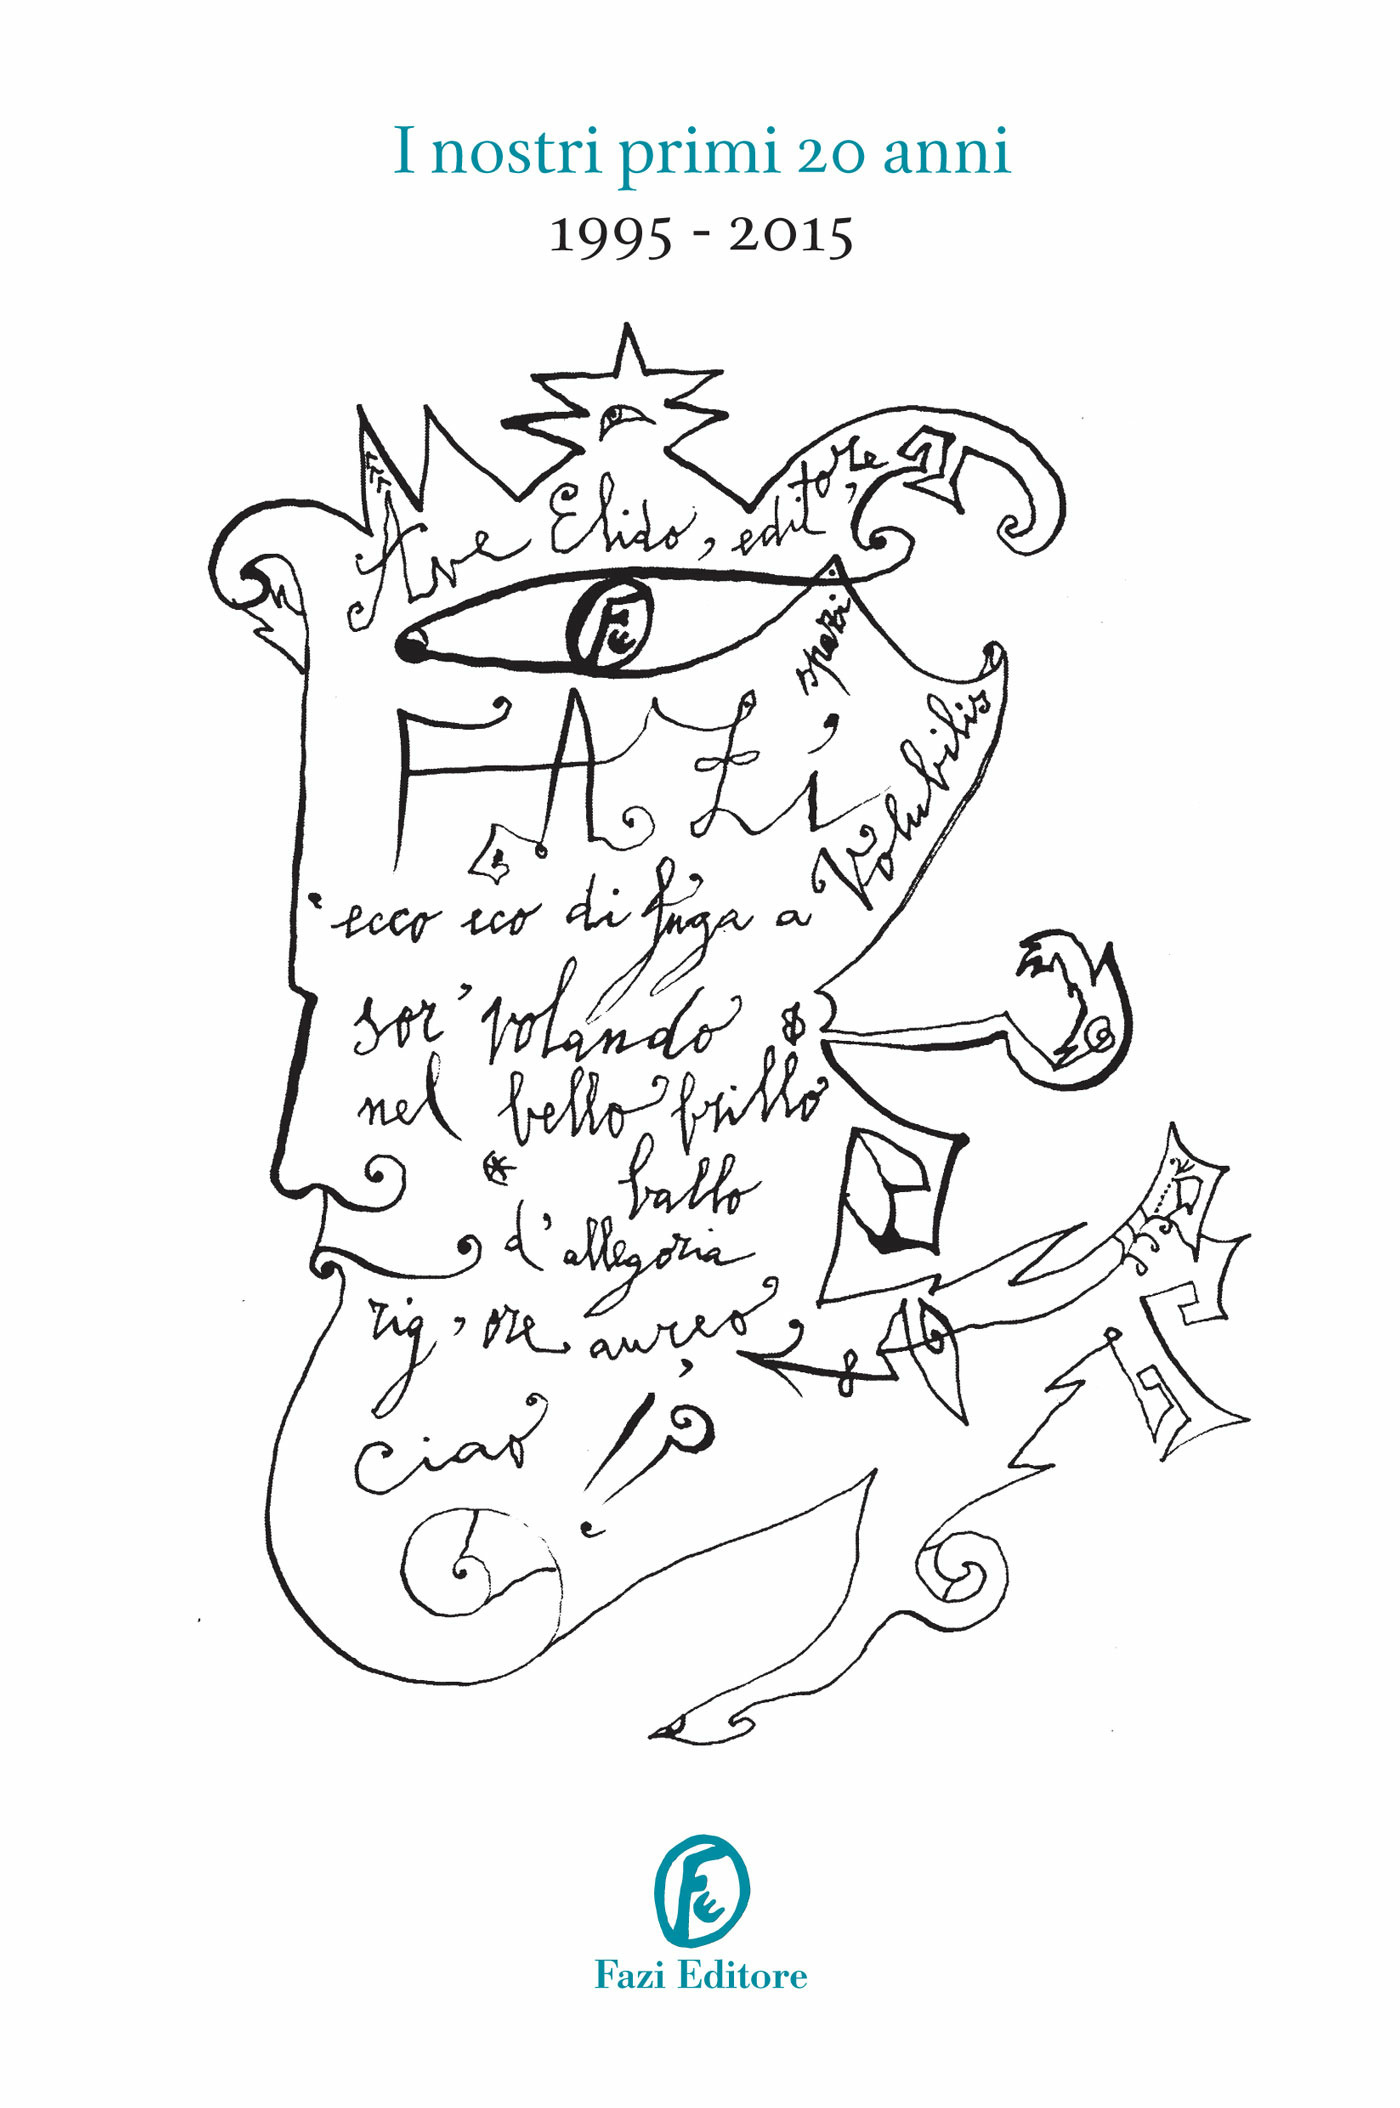 I nostri primi 20 anni
1995 - 2015
Ave Elido, edit'tore
Fe
spazi
FAZi
Volubilis
ecco eco di fuga a
sor' volando $
nel bello brillo
ballo
d'allegoria
rig, ore aureo
ciao
Fe
Fazi Editore